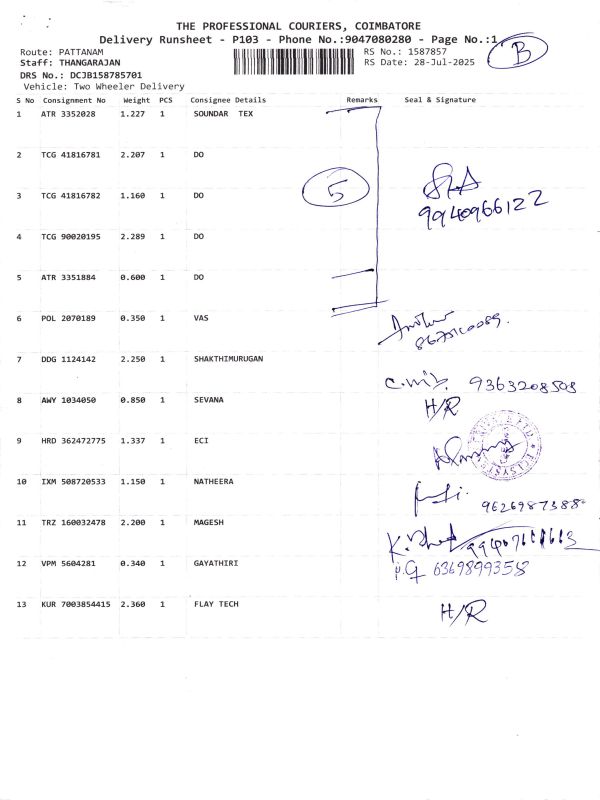 THE PROFESSIONAL COURIERS, COIMBATORE
Delivery Runsheet - P103 - Phone No.:9047080280 - Page No.:1 B
Route: PATTANAM RS No.: 1587857
Staff: THANGARAJAN RS Date: 28-Jul-2025
DRS No.: DCJB158785701
Vehicle: Two Wheeler Delivery
S No Consignment No Weight PCS Consignee Details Remarks Seal & Signature
1 ATR 3352028 1.227 1 SOUNDAR TEX
2 TCG 41816781 2.207 1 DO
3 TCG 41816782 1.160 1 DO 5
9940966122
4 TCG 90020195 2.289 1 DO
5 ATR 3351884 0.600 1 DO
6 POL 2070189 0.350 1 VAS
7 DDG 1124142 2.250 1 SHAKTHIMURUGAN
9363208508
8 AWY 1034050 0.850 1 SEVANA H/R
9 HRD 362472775 1.337 1 ECI
10 IXM 508720533 1.150 1 NATHEERA
9626987388
11 TRZ 160032478 2.200 1 MAGESH
12 VPM 5604281 0.340 1 GAYATHIRI 6369899358
13 KUR 7003854415 2.360 1 FLAY TECH H/R